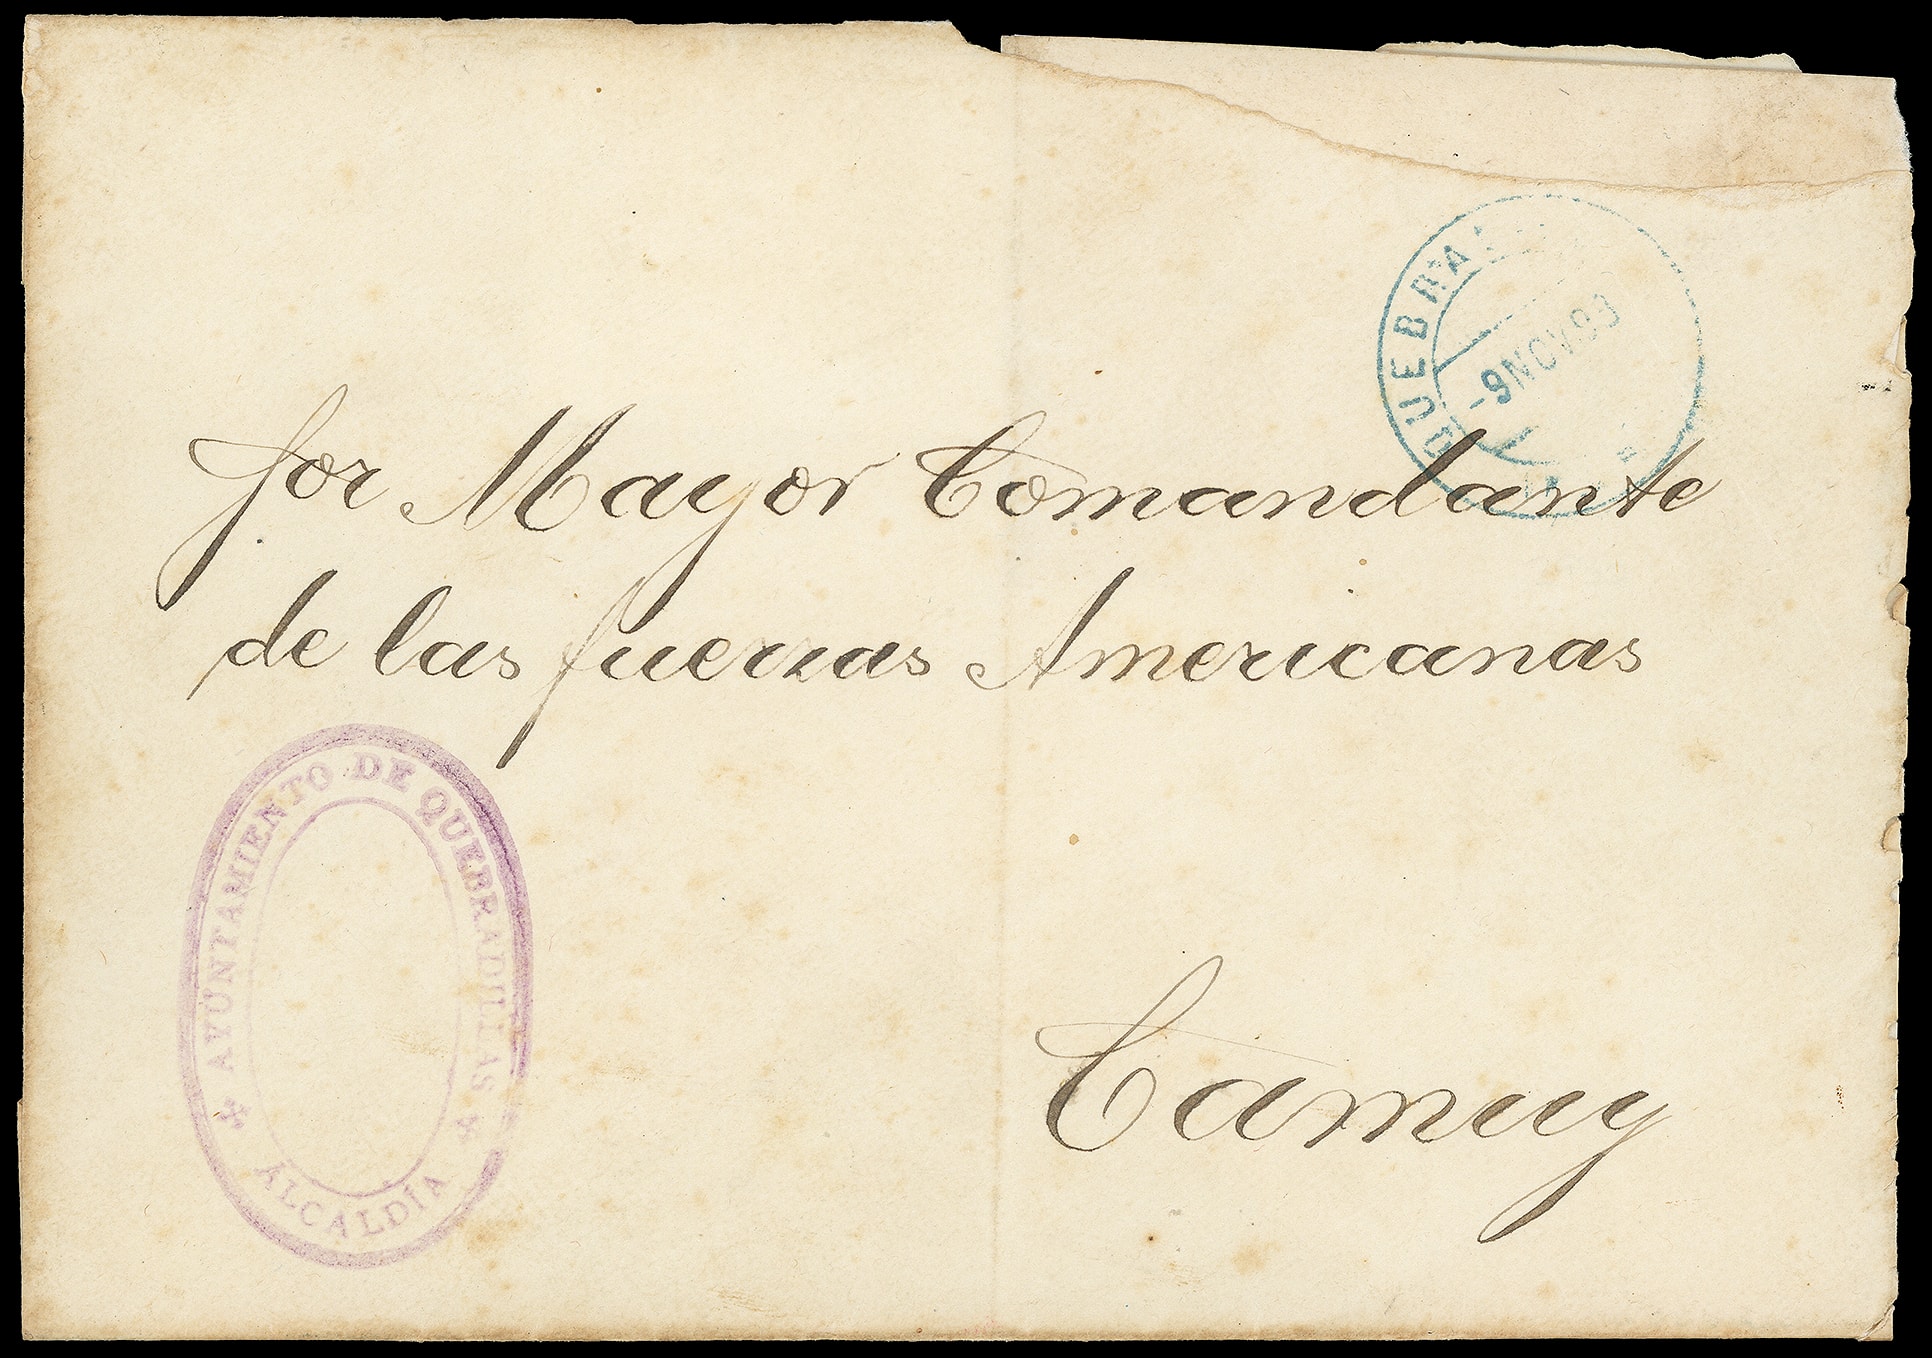 QUEBRA
-9 NOV 98
Sor Mayor Comandante
de las fuerzas Americanas
AYUNTAMIENTO DE QUEBRADILLAS
ALCALDÍA
Camuy